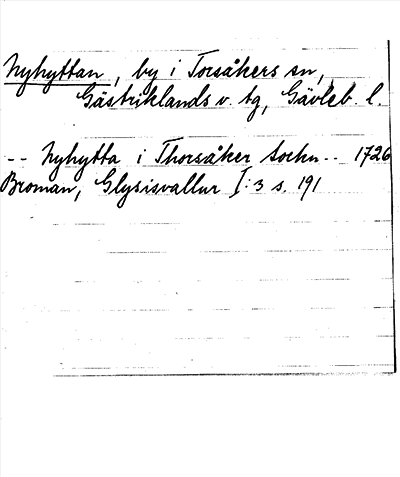 Nyhyttan, by i Torsåkers sn,
Gästriklands v. tg, Gävleb. l.
-- Nyhytta i Thorsåker Sochn -- 1726
Broman, Glysisvallur I:3 s. 191